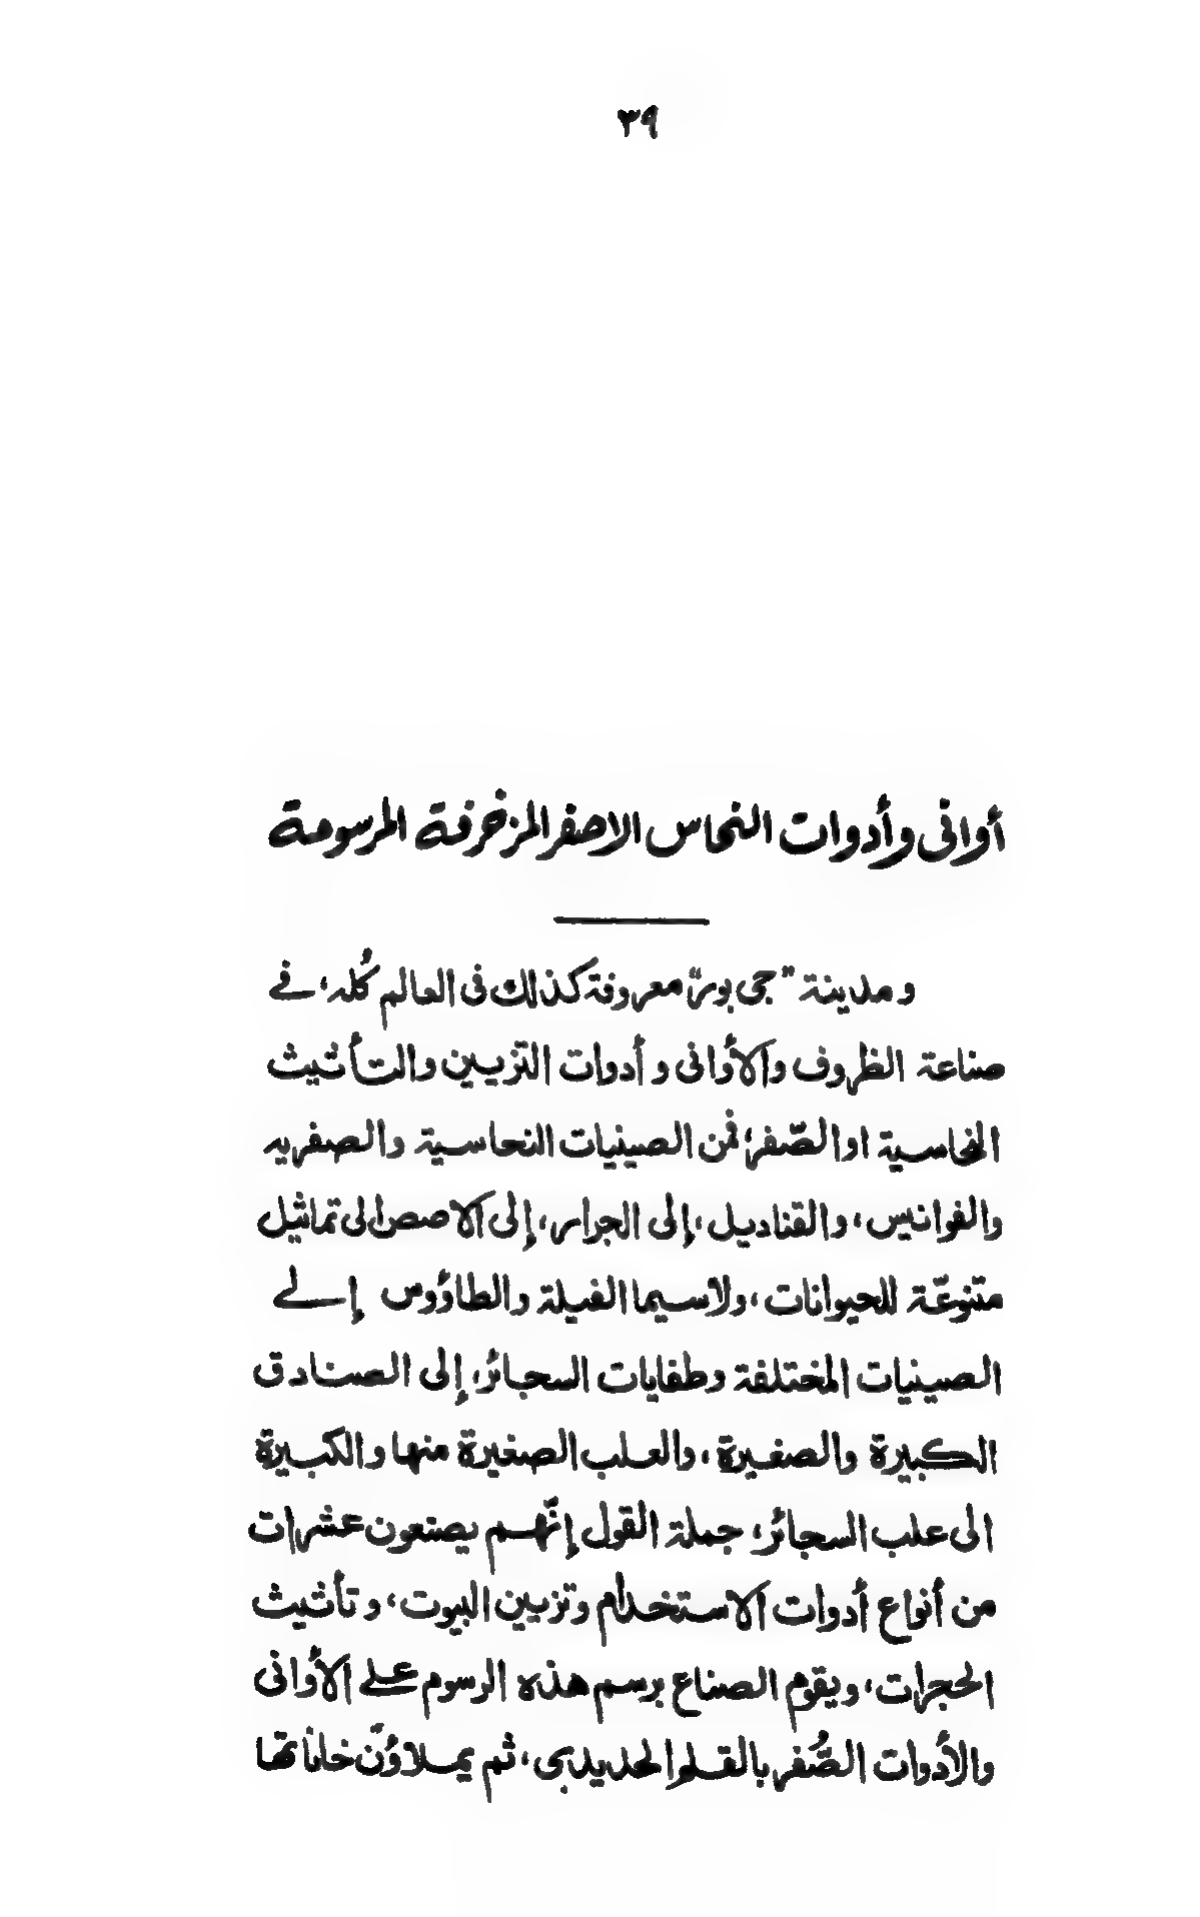 ٣٩
أوانى وأدوات النحاس الاصفر المزخرفة المرسومة
ومدينة "جى بور" معروفة كذلك فى العالم كُله، في
صناعة الظروف والأوانى و أدوات التزيين والتأثيث
النحاسية او الصّفر؛ فمن الصينيات النحاسية والصفريه
والفوانيس، والقناديل، إلى الجرار، إلى الاصص الى تماثيل
متنوعّة للحيوانات، ولاسيما الفيلة والطاؤوس إلى
الصينيات المختلفة وطفايات السجائر، إلى الصنادق
الكبيرة والصغيرة، والعلب الصغيرة منها والكبيرة
الى علب السجائر، جملة القول إنّهم يصنعون عشرات
من أنواع أدوات الاستخدام وتزيين البيوت، وتأثيث
الحجرات، ويقوم الصناع برسم هذه الرسوم على الأوانى
والأدوات الصُّفر بالقلم الحديدبى، ثم يملاؤنّ خاناتها